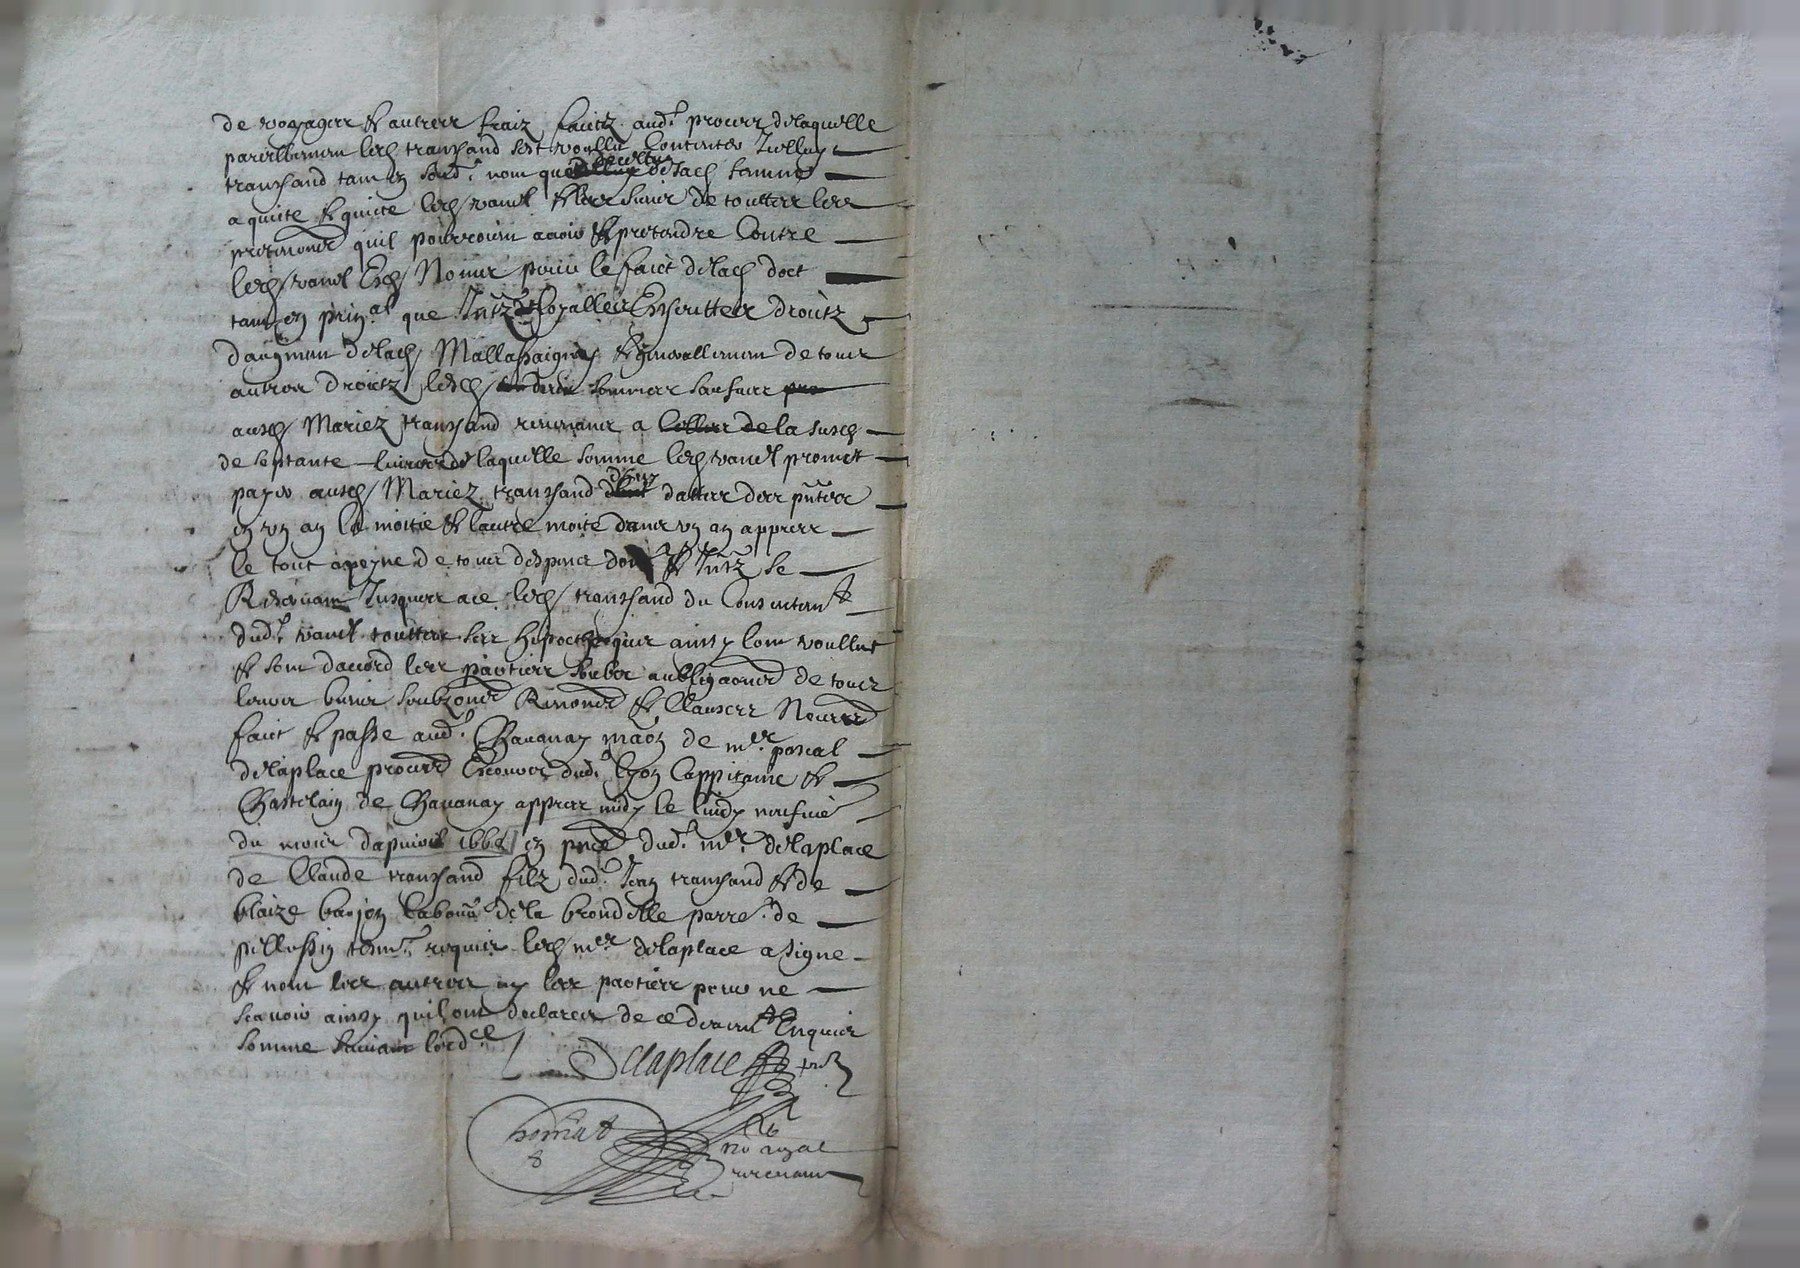 de voyages & autres fraiz faictz aud.t proces delaquelle
pareillement led transand sest voullu contenter Icelluy
transand tam en sond.t nom que de celluy de sad femme
a quitte & quitte led vanel & les siens de touttes les
pretentions quil pourroient avoir & pretendre contre
led vanel Esd Noms pour le faict delad dot
tam en prin.al que Intz & loyalles Escrittes droictz
daugment delad Mallassaigny & genrallement de tous
autres droictz lesd sommes
ausd Mariez transand revenants a la susd
de septante livres de laquelle somme led vanel promet
payer ausd Mariez transand dhuy dattes des pntes
en un an la moitie & lautre moitie dans un an appres
le tout apeyne de tous despens & Intz se
Reservant Jusques ace led transand du consentem.t
dud.t vanel touttes ses hipotheques ainsy lont voullu
& sont daccord les parties soubz aubligaons de tous
leurs biens soubzons Renons & clauses Neccres
faict & passe aud.t Chavanay maon de m.re pascal
delaplace procureur dud.t lyon cappitaine &
Chastelain de Chavanay appres midy le lundy neufvie
du mois dapvril 1668 en pnce dud.t m.re delaplace
de Claude transand filz dud.t Jean transand &de
blaize barjon labour de la brondelle parre. de
pellussin tesm.s requis led m.re delaplace a signe
& nom les autres ny les parties pour ne
scavoir ainsy quil ont declares de ce deuem.t Enquis
somme suivant lord.ce
Delaplace pnt
no royal
recevant